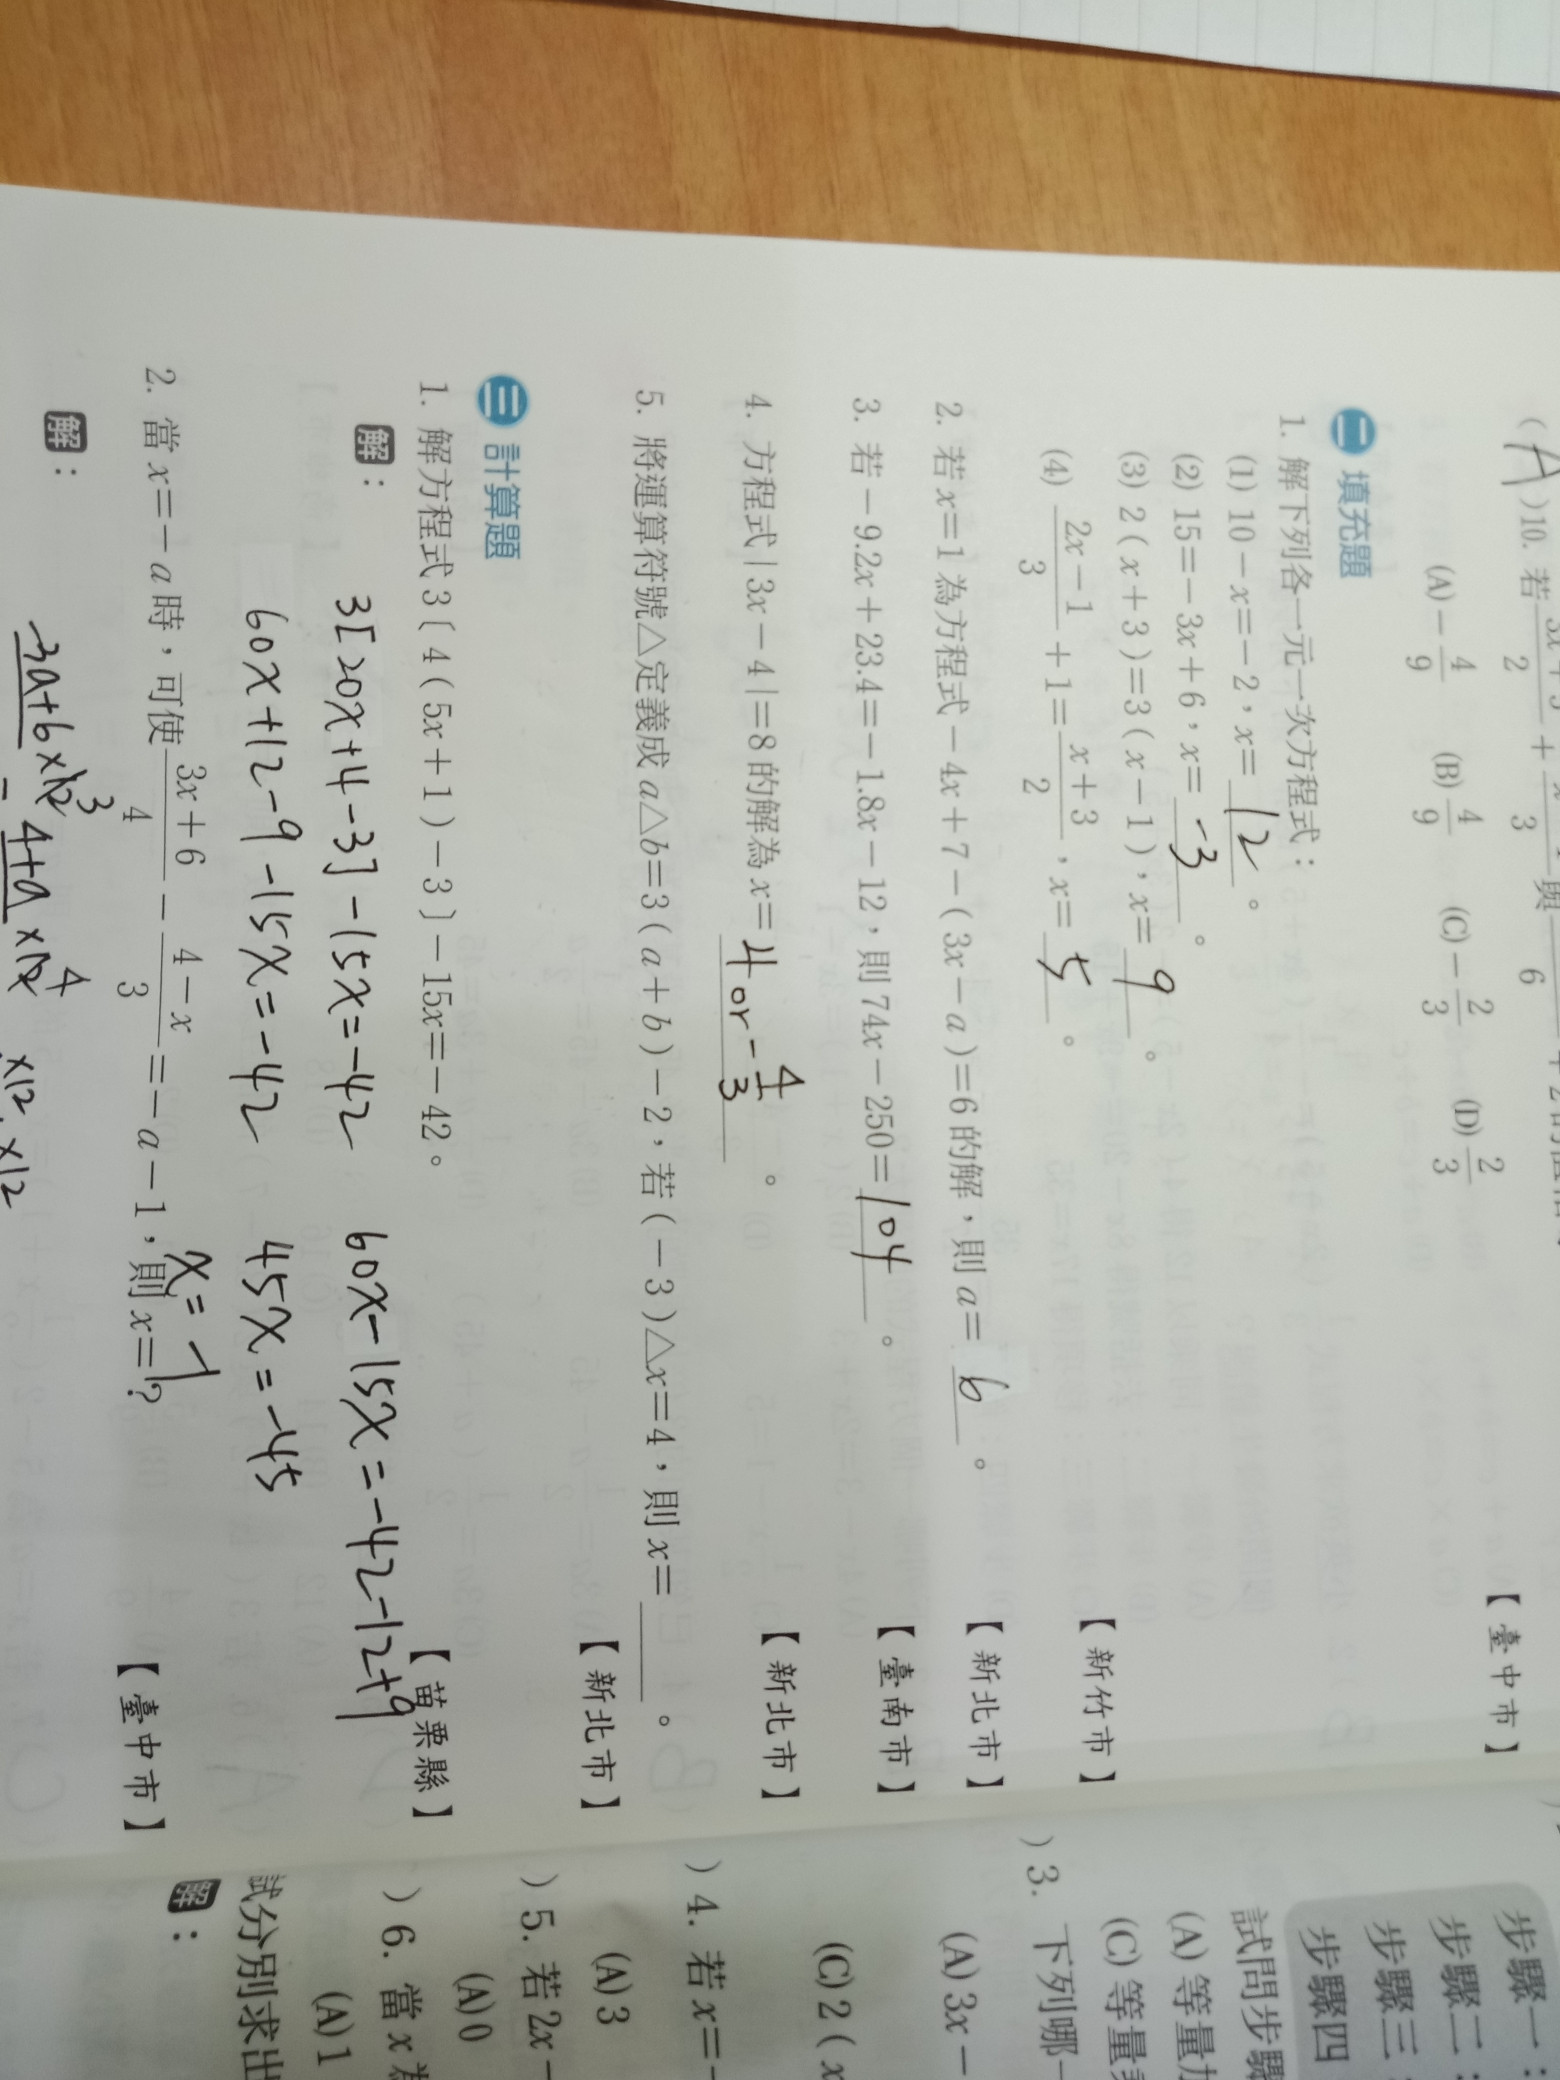 (A)10. 若 3x+5/2 + 3 與 6
(A) −4/9 (B) 4/9 (C) −2/3 (D) 2/3
【臺中市】
二 填充題
1. 解下列各一元一次方程式：
(1) 10−x=−2，x= 12 。
(2) 15=−3x+6，x= -3 。
(3) 2(x+3)=3(x−1)，x= 9 。
(4) 2x−1/3 +1= x+3/2，x= 5 。
【新竹市】
2. 若 x=1 為方程式−4x+7−(3x−a)=6 的解，則 a= 6 。
【新北市】
3. 若−9.2x+23.4=−1.8x−12，則 74x−250= 104 。
【臺南市】
4. 方程式|3x−4|=8 的解為 x= 4 or -4/3 。
【新北市】
5. 將運算符號△定義成 a△b=3(a+b)−2，若(−3)△x=4，則 x= 。
【新北市】
三 計算題
1. 解方程式 3〔4(5x+1)−3〕−15x=−42。
【苗栗縣】
解：
3[20x+4-3]-15x=-42 60x-15x=-42-12+9
60x+12-9-15x=-42 45x=-45
x=-1
2. 當 x=−a 時，可使 3x+6/4 − 4−x/3 =−a−1，則 x=？
【臺中市】
解：
-3a+6 ×12 3 - 4+a ×12 4 ×12 ×12
步驟一：
步驟二：
步驟三
步驟四
試問步驟
(A) 等量
(C) 等量
)3. 下列哪一
(A) 3x−
(C) 2(x
)4. 若 x=−
(A) 3
)5. 若 2x−
(A) 0
)6. 當 x
(A) 1
試分別求出
解：